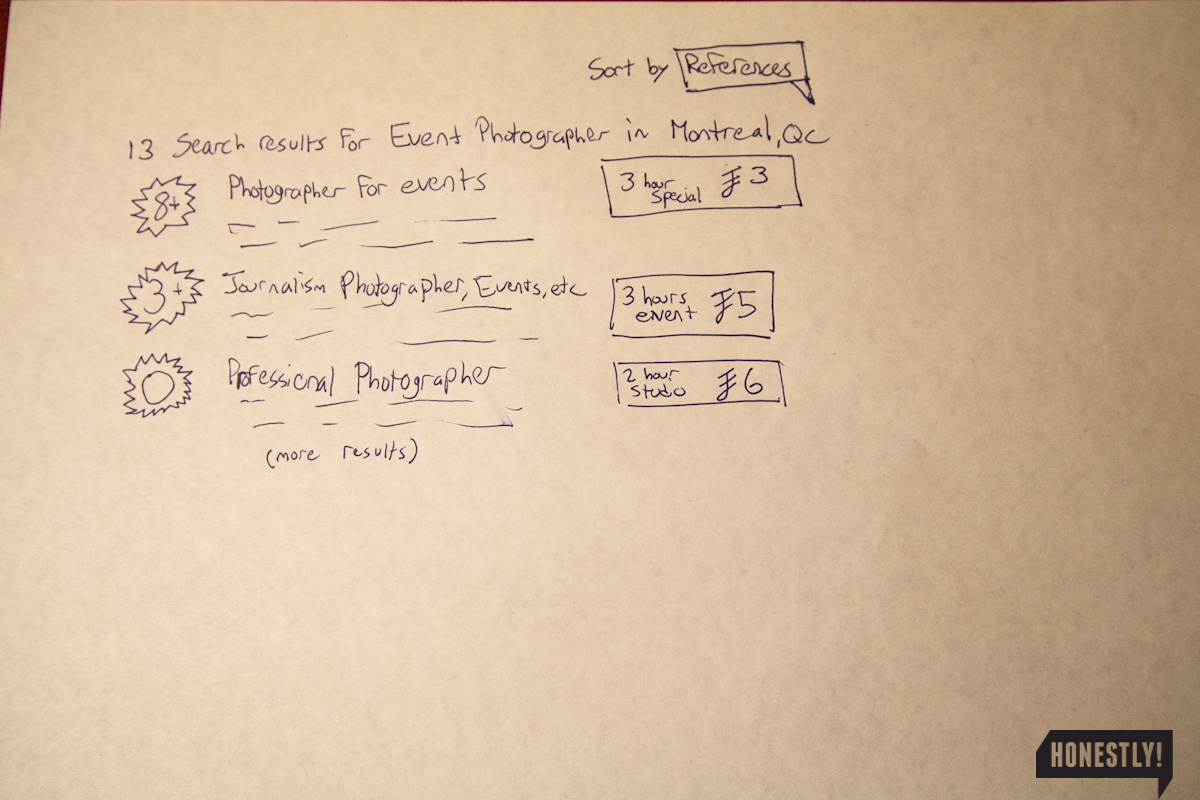 Sort by References
13 Search results For Event Photographer in Montreal, QC
8+ Photographer For events 3 hour Special ƒ 3
3+ Journalism Photographer, Events, etc 3 hours event ƒ 5
0 Professional Photographer 2 hour Studio ƒ 6
(more results)
HONESTLY!